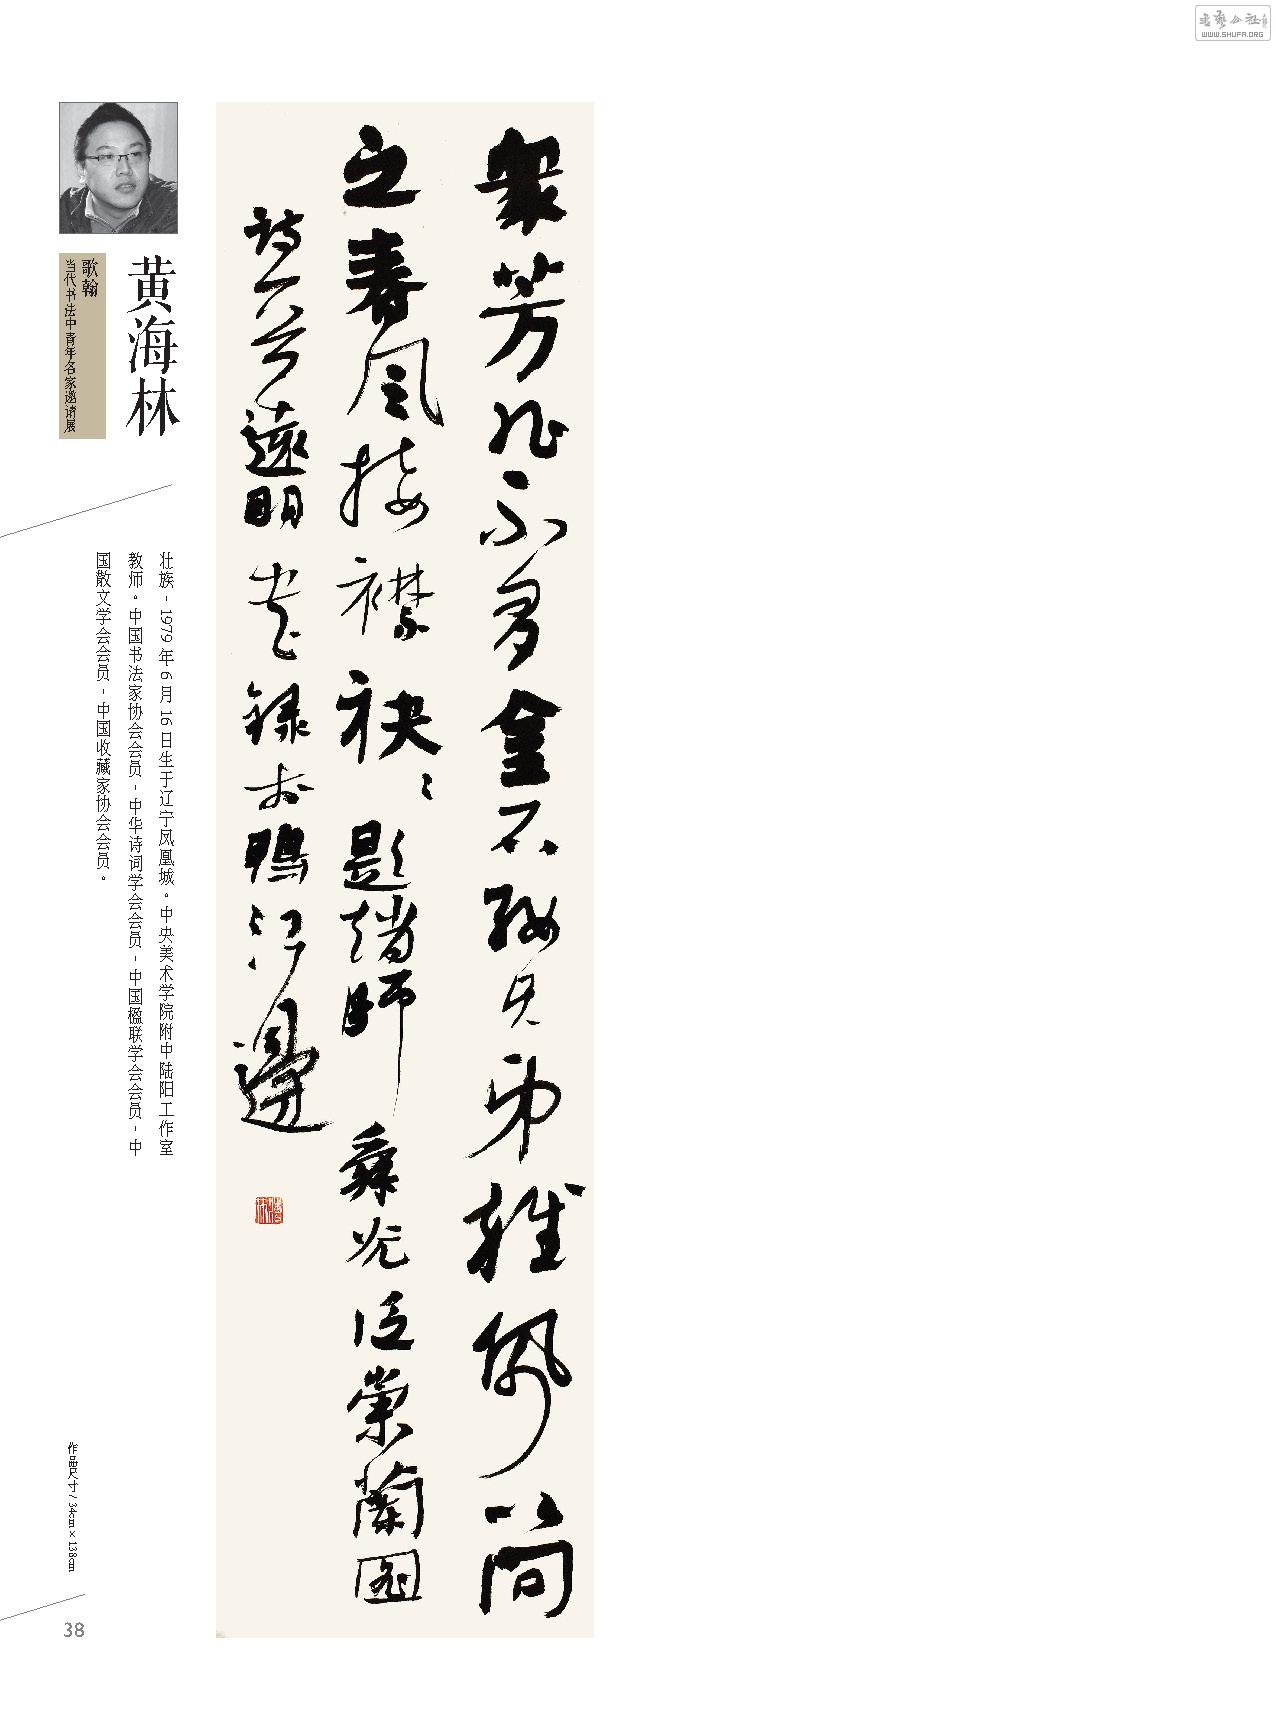 书艺公社
WWW.SHUFA.ORG
黄海林
歌翰
当代书法中青年名家邀请展
壮族，1979年6月16日生于辽宁凤凰城。中央美术学院附中陆阳工作室
教师。中国书法家协会会员，中华诗词学会会员，中国楹联学会会员，中
国散文学会会员，中国收藏家协会会员。
衆芳非不多金石雜佩以問
之春風接襟袂題趙師舜光泛崇蘭圖
詩一首遠明錄於鴨江邊
作品尺寸/34cm×138cm
38